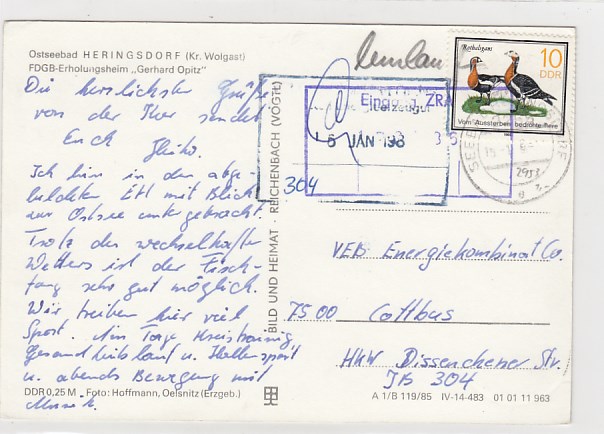 Ostseebad HERINGSDORF (Kr. Wolgast)
FDGB-Erholungsheim „Gerhard Opitz"
Die herzlichsten Grüße
von der Kur sendet
Euch
Ich bin in dem abge-
bildeten EH mit Blick
zur Ostsee untergebracht.
Trotz des wechselhaften
Wetters ist der Fisch-
fang sehr gut möglich.
Wir treiben hier viel
Sport. Am Tage Kreistraining,
Gesundheitslauf u. Hallensport
u. abends Bewegung mit
Musik.
DDR 0,25 M · Foto: Hoffmann, Oelsnitz (Erzgeb.)
BILD UND HEIMAT · REICHENBACH (VOGTL)
Rothalsgans
10
DDR
Vom Aussterben bedrohte Tiere
Eing. ZRA
JAN 198
304
VEB Energiekombinat Co.
7500 Cottbus
HKW Dissenchener Str.
JB 304
A 1/B 119/85 IV-14-483 01 01 11 963